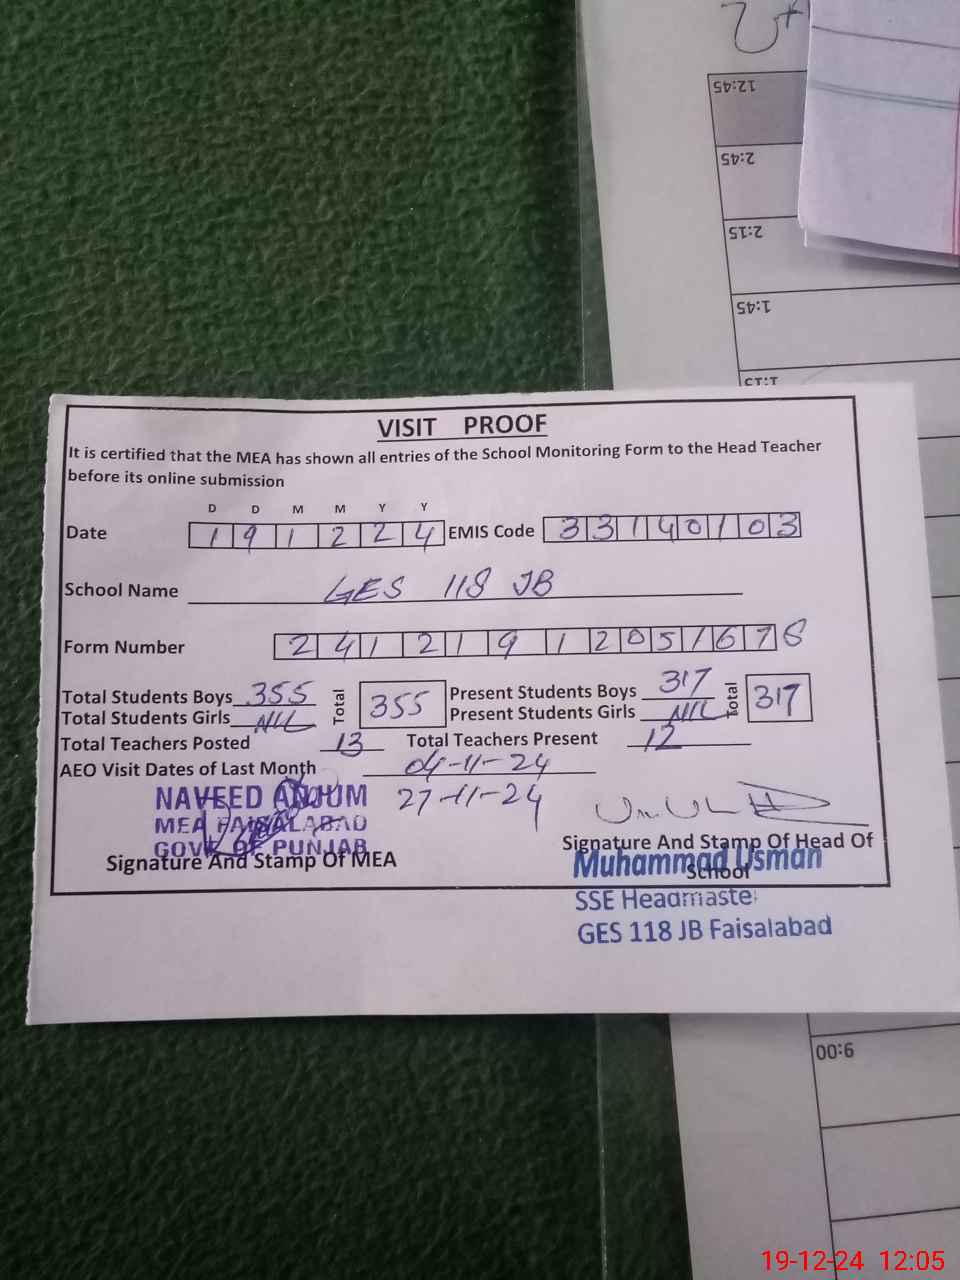 12:45
2:45
2:15
1:45
1:15
VISIT PROOF
It is certified that the MEA has shown all entries of the School Monitoring Form to the Head Teacher
before its online submission
D D M M Y Y
Date 1 9 1 2 2 4 EMIS Code 3 3 1 4 0 1 0 3
School Name GES 118 JB
Form Number 2 4 1 2 1 9 1 2 0 5 1 6 7 8
Total Students Boys 355 Total 355 Present Students Boys 317 Total 317
Total Students Girls NIL Present Students Girls NIL
Total Teachers Posted 13 Total Teachers Present 12
AEO Visit Dates of Last Month 04-11-24
27-11-24
NAVEED ANJUM
MEA FAISALABAD
GOVT OF PUNJAB
Signature And Stamp Of MEA
Signature And Stamp Of Head Of
School
Muhammad Usman
SSE Headmaster
GES 118 JB Faisalabad
9:00
19-12-24 12:05